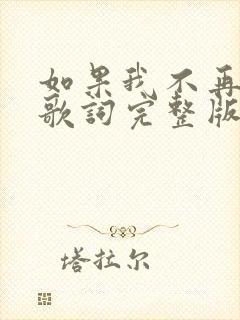 如果我不再
歌詞完整版
塔拉尔